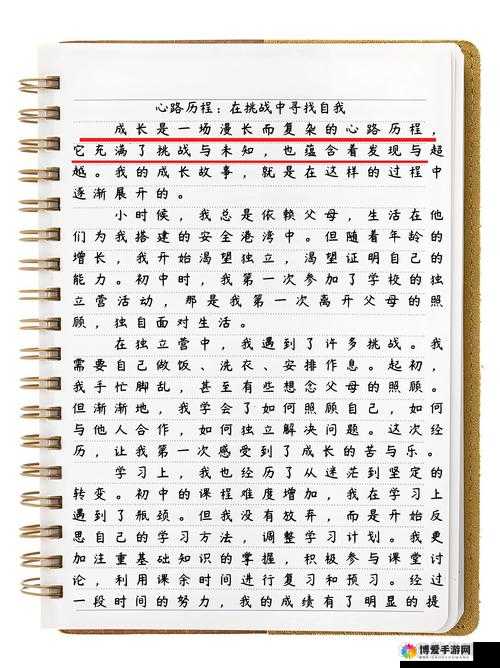 心路历程：在挑战中寻找自我
成长是一场漫长而复杂的心路历程，
它充满了挑战与未知，也蕴含着发现与超
越。我的成长故事，就是在这样的过程中
逐渐展开的。
小时候，我总是依赖父母，生活在他
们为我搭建的安全港湾中。但随着年龄的
增长，我开始渴望独立，渴望证明自己的
能力。初中时，我第一次参加了学校的独
立营活动，那是我第一次离开父母的照
顾，独自面对生活。
在独立营中，我遇到了许多挑战。我
需要自己做饭、洗衣、安排作息。起初，
我手忙脚乱，甚至有些想念父母的照顾。
但渐渐地，我学会了如何照顾自己，如何
与他人合作，如何独立解决问题。这次经
历，让我第一次感受到了成长的苦与乐。
学习上，我也经历了从迷茫到坚定的
转变。初中的课程难度增加，我在学习上
遇到了瓶颈。但我没有放弃，而是开始反
思自己的学习方法，调整学习计划。我更
加注重基础知识的掌握，积极参与课堂讨
论，利用课余时间进行复习和预习。经过
一段时间的努力，我的成绩有了明显的提
博爱手游网